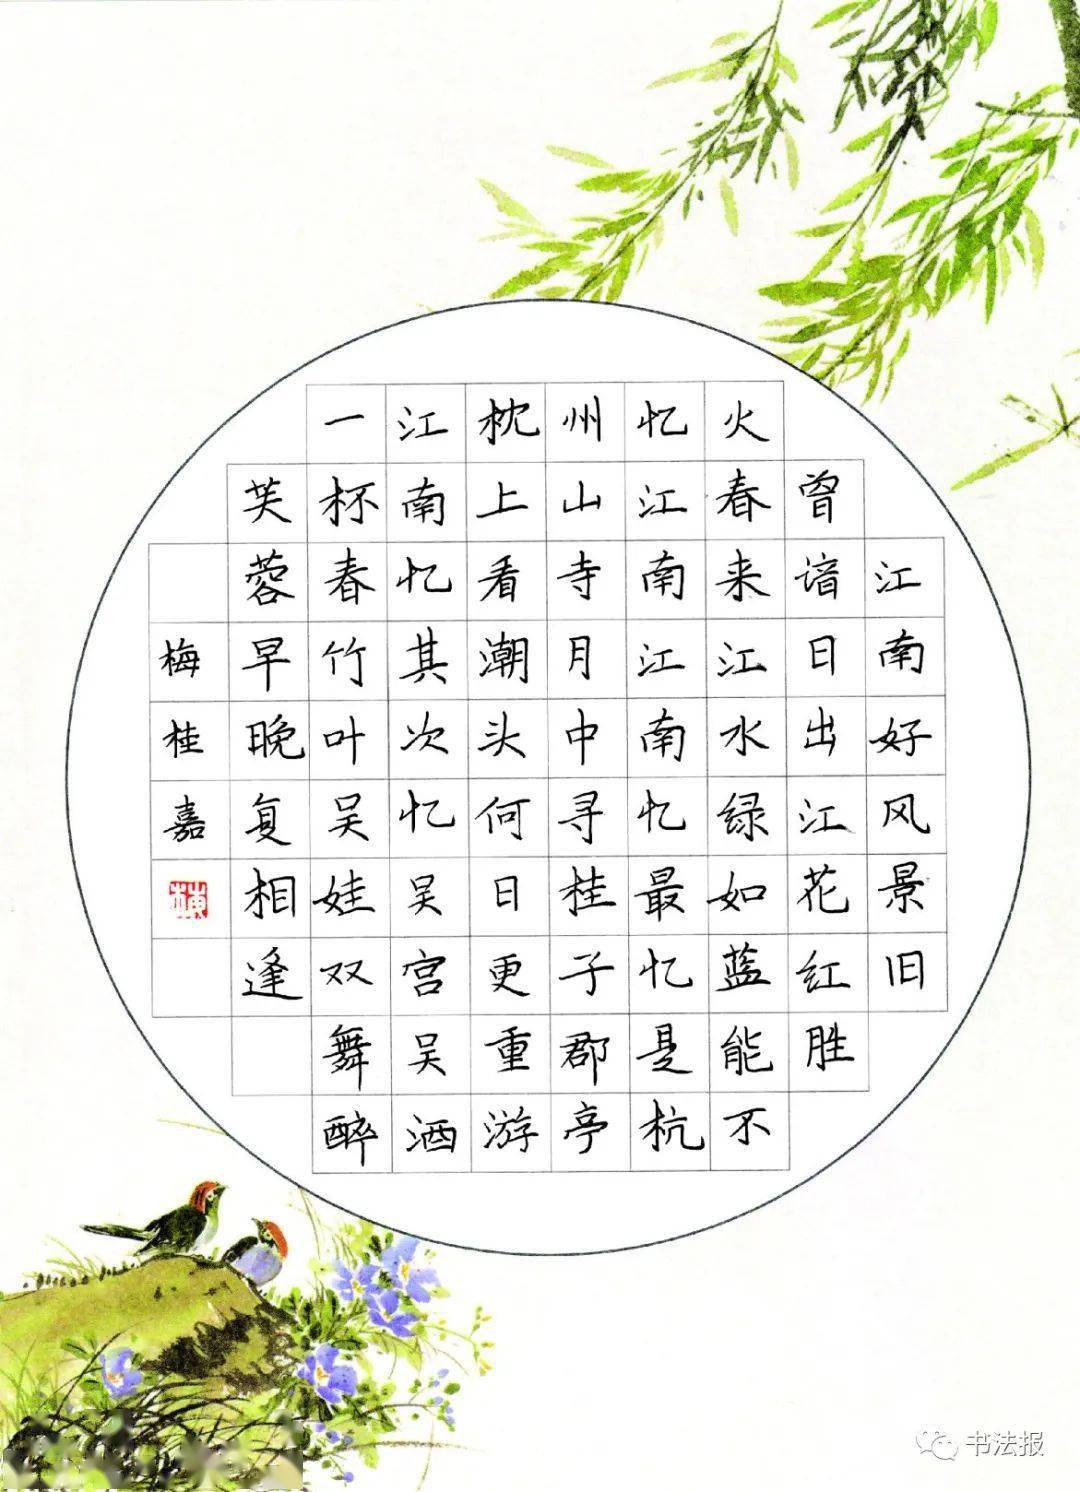 江南好风景旧
曾谙日出江花红胜
火春来江水绿如蓝能不
忆江南江南忆最忆是杭
州山寺月中寻桂子郡亭
枕上看潮头何日更重游
江南忆其次忆吴宫吴酒
一杯春竹叶吴娃双舞醉
芙蓉早晚复相逢
梅桂嘉
书法报